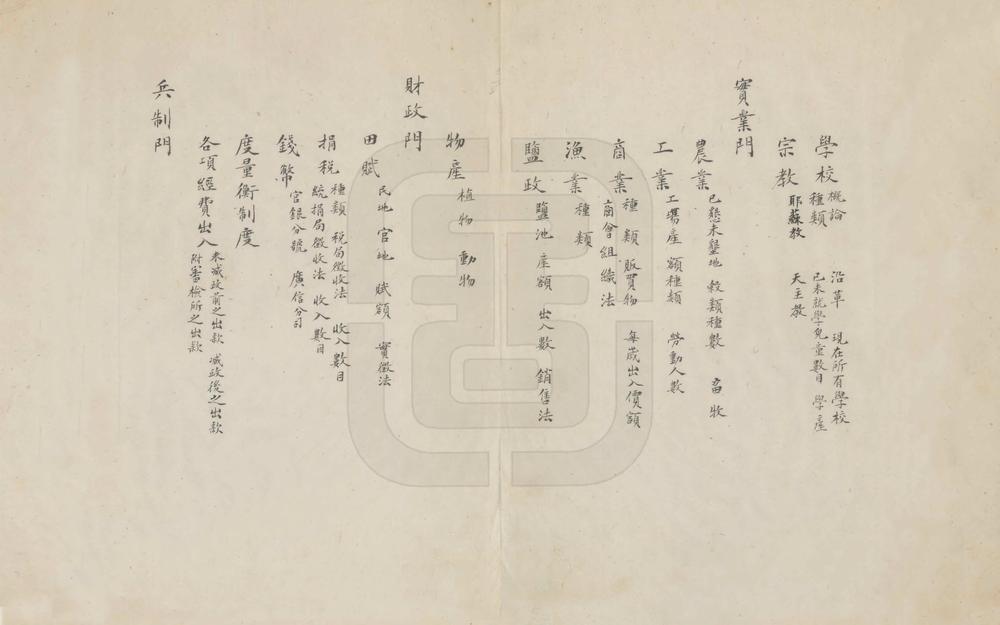 學校 概論 沿革 現在所有學校
種類 已未就學兒童數目 學產
宗教 耶蘇教 天主教
實業門
農業 已懇未墾地 穀類種數 畜牧
工業 工場產額種類 勞動人數
商業 種類 販買物 每歲出入價額
商會組織法
漁業 種類
鹽政 鹽池產額 出入數 銷售法
物產 植物 動物
財政門
田賦 民地官地 賦額 實徵法
捐稅 種類 稅局徵收法 收入數目
統捐局徵收法 收入數目
錢幣 官銀分號 廣信分司
度量衡制度
各項經費出入 未減政前之出款 減政後之出款
附審檢所之出款
兵制門